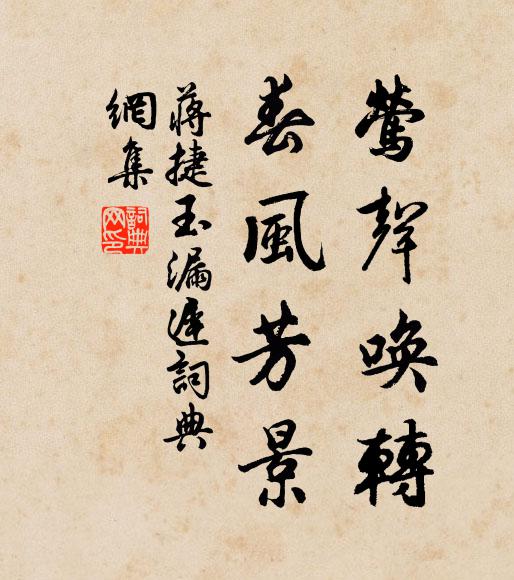 鶯聲喚轉
春風芳景
蔣捷玉漏遲詞典
網集
詞典
网印